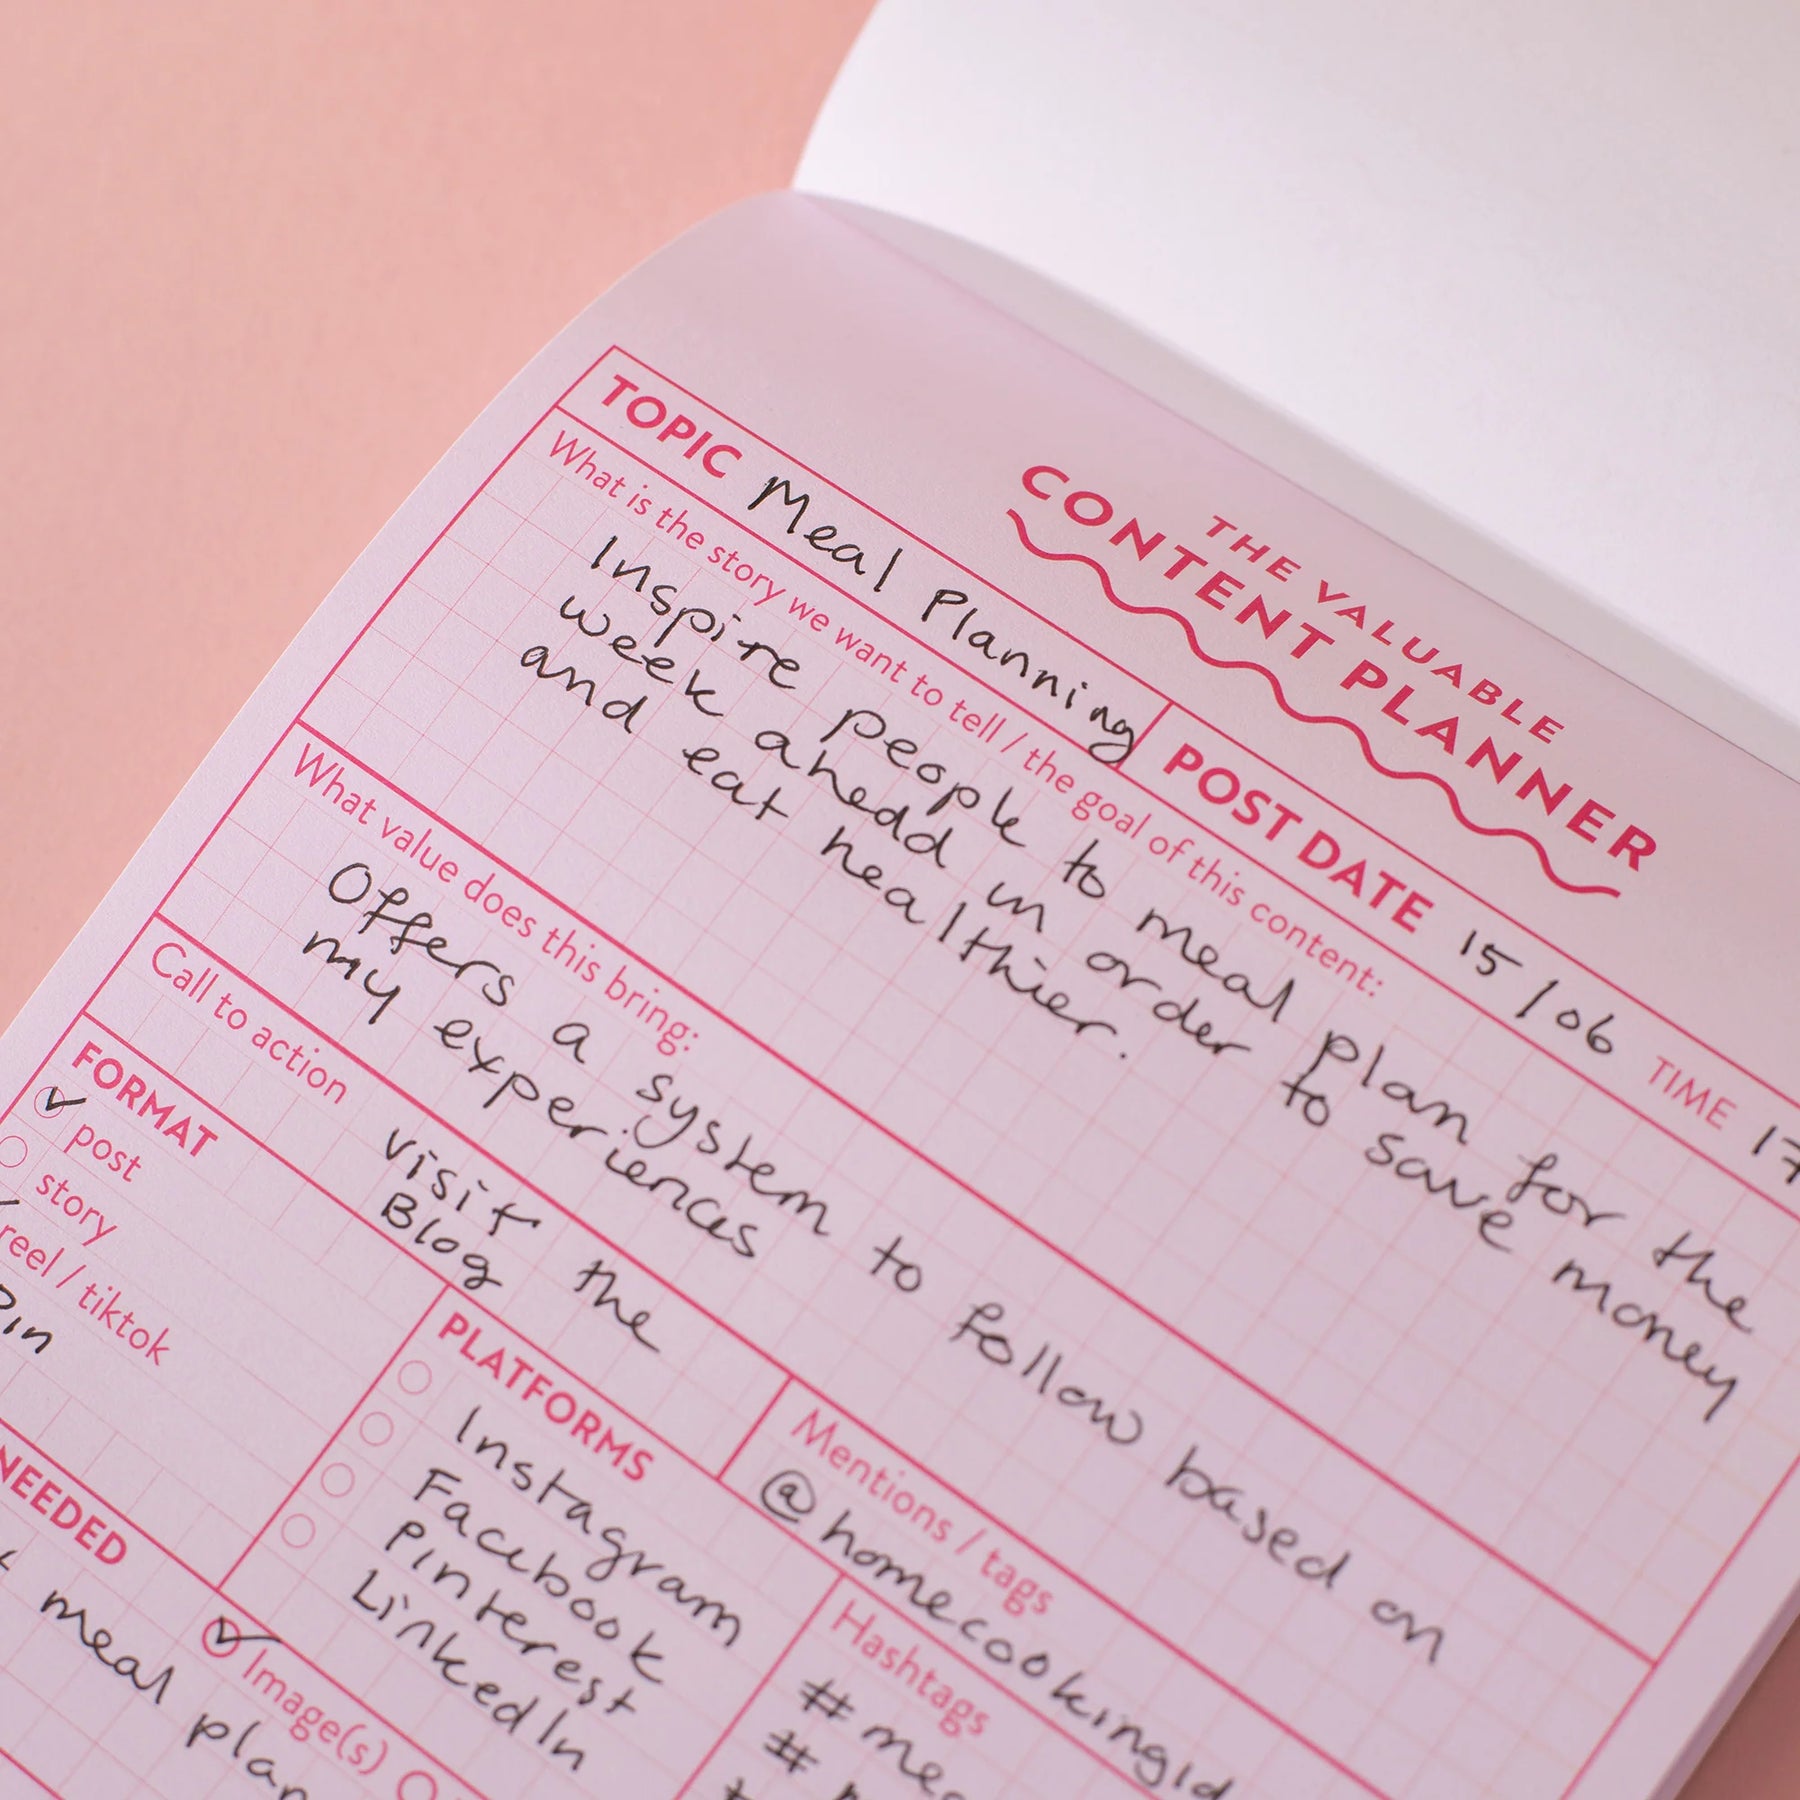 THE VALUABLE
CONTENT PLANNER
TOPIC Meal Planning
POST DATE 15/06 TIME 17
What is the story we want to tell / the goal of this content:
Inspire people to meal plan for the
week ahedd in order to save money
and eat healthier.
What value does this bring:
Offers a system to follow based on
my experiences
Call to action
visit the
Blog
Mentions / tags
@homecookingid
FORMAT
post
story
reel / tiktok
Pin
PLATFORMS
Instagram
Facebook
Pinterest
LinkedIn
Hashtags
# mea
#
NEEDED
Image(s)
meal plan